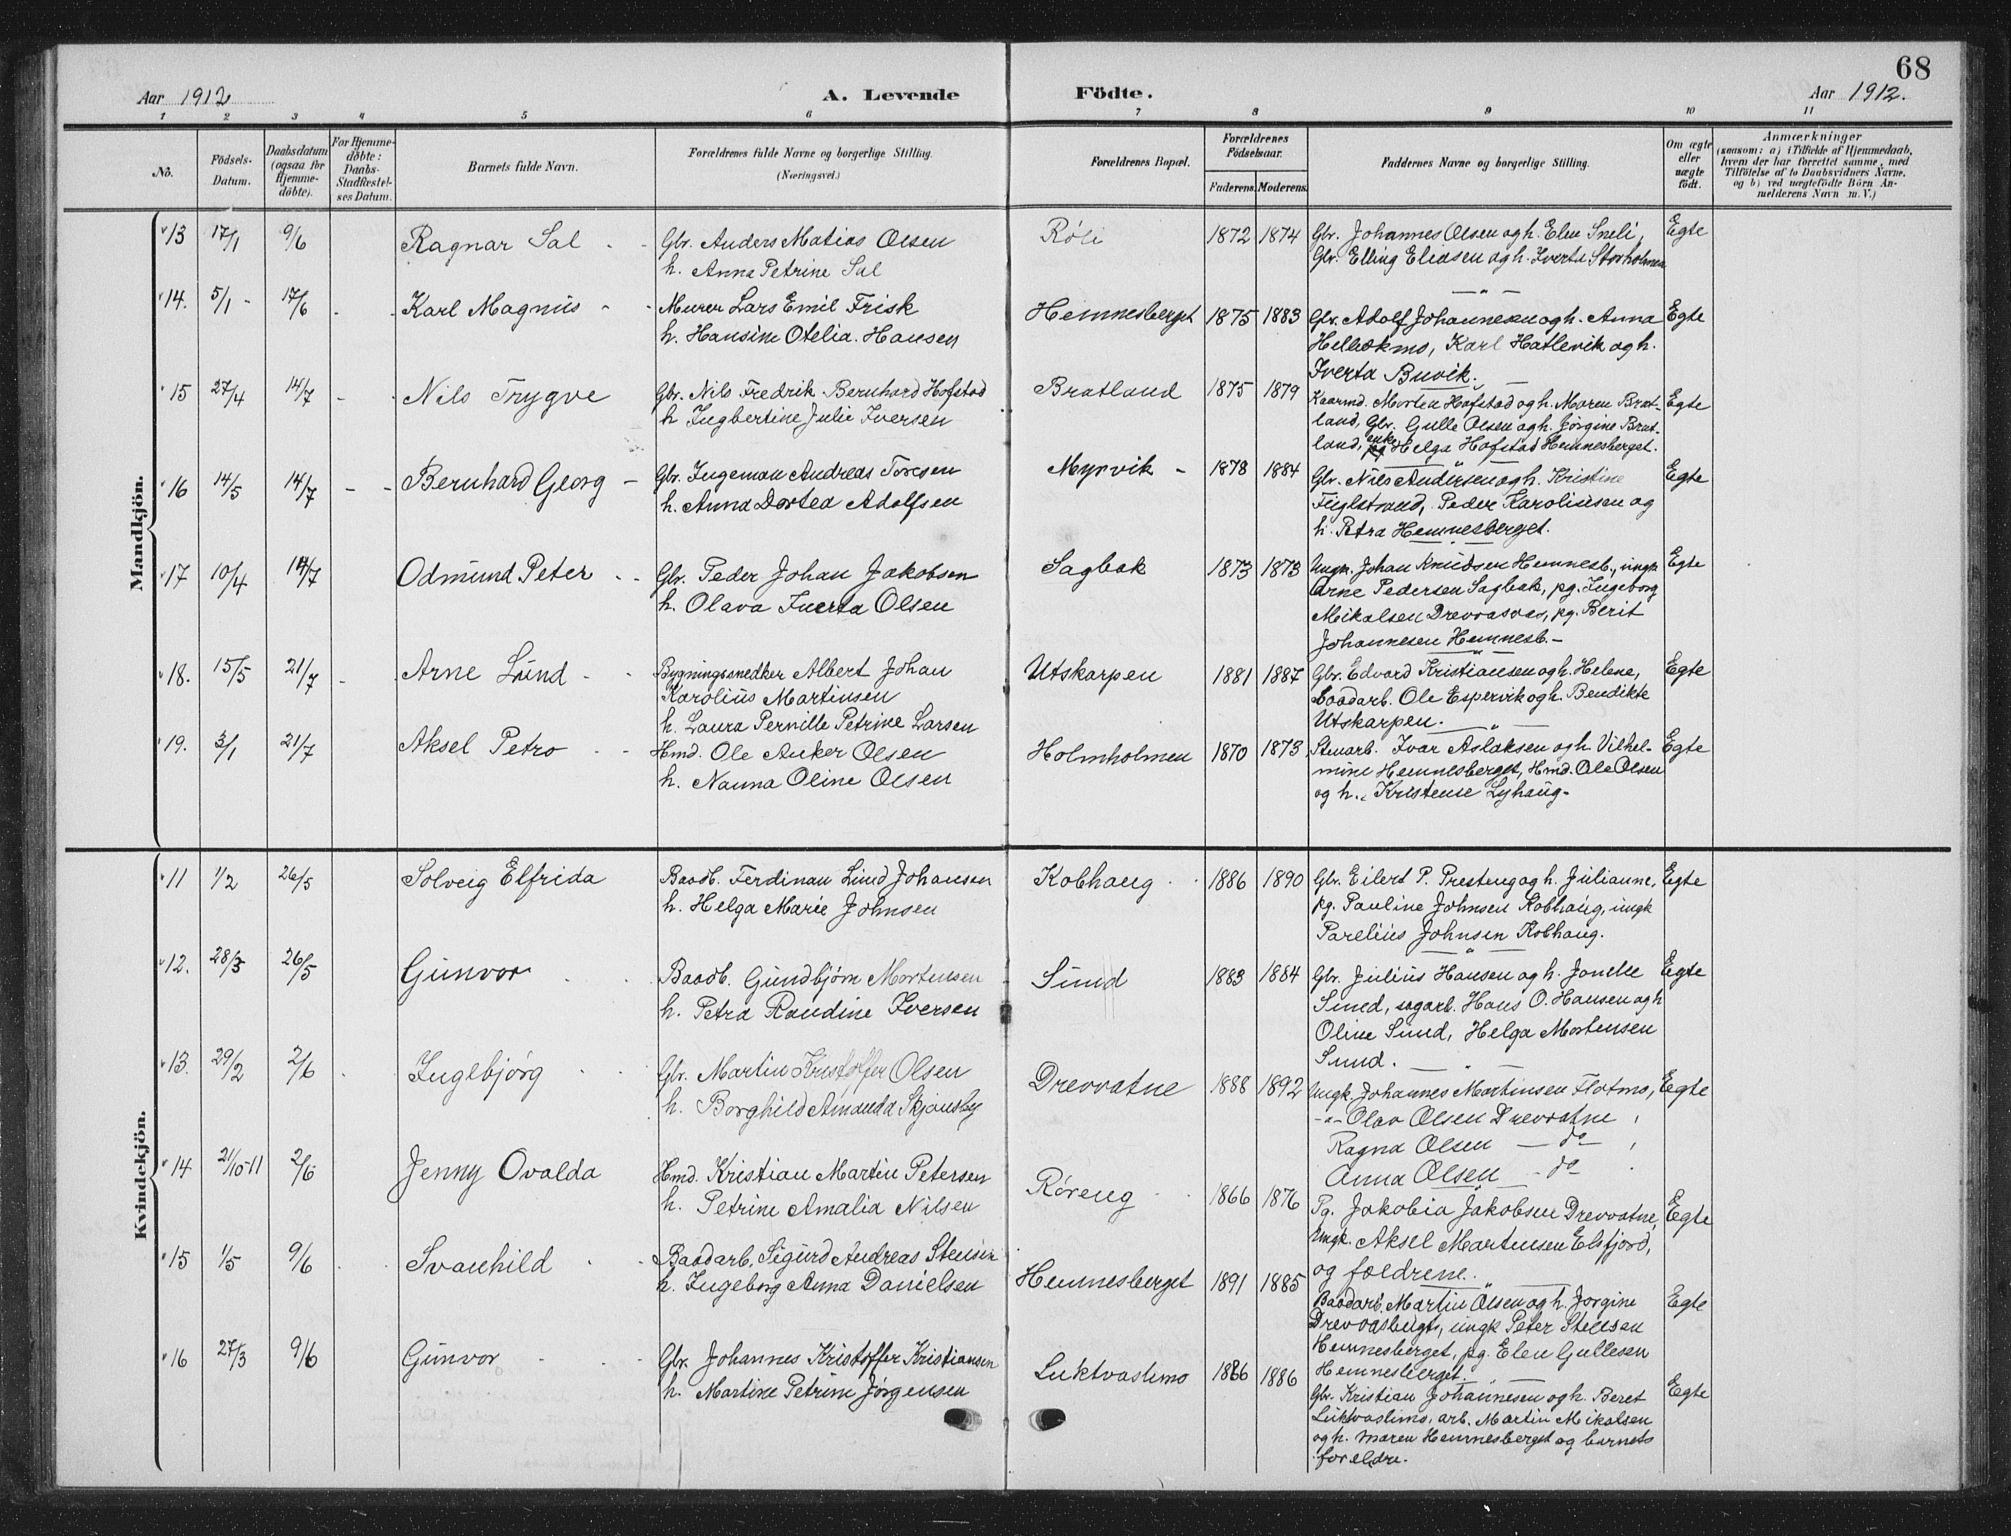 68
Aar 1912
A. Levende
Födte.
Aar 1912.
1 2 3 4 5 6 7 8 9 10 11
No.
Födsels-Datum.
Daabsdatum (ogsaa for Hjemmedöbte).
For Hjemmedöbte: Daabs-Stadfæstelses Datum.
Barnets fulde Navn.
Forældrenes fulde Navne og borgerlige Stilling.
(Næringsvei.)
Forældrenes Bopæl.
Forældrenes Födselsaar.
Faderens. Moderens.
Faddernes Navne og borgerlige Stilling.
Om ægte eller uægte födt.
Anmærkninger
(saasom: a) i Tilfælde af Hjemmedaab,
hvem der har forrettet samme, med
Tilföielse af to Daabsvidners Navne,
og b) ved uægtefödte Börn An-
melderens Navn m. V.)
Mandkjön.
13 17/1 9/6 Ragnar Sal Gbr. Anders Matias Olsen Røli 1872 1874 Gbr. Johannes Olsen og h. Elen Sneli, Egte
h. Anna Petrine Sal Gbr. Elling Eliasen og h. Iverta Storholmen
14. 5/1 17/6 Karl Magnus Murer Lars Emil Frisk Hemnesberget 1875 1883 Gbr. Adolf Johannesen og h. Anna Egte
h. Hansine Otelia Hansen Karl Hatlevik og h.
Iverta Buvik.
15 27/4 14/7 Nils Trygve Gbr. Nils Fredrik Bernhard Hofstad Bratland 1875 1879 Kaarmd. Morten Hofstad og h. Maren Brat- Egte
h Ingbertine Julie Iversen land, Gbr. Gulle Olsen og h. Jørgine Brat-
land, enke Helga Hofstad Hemnesberget.
16 14/5 14/7 Bernhard Georg Gbr. Ingeman Andreas Toresen Myrvik 1878 1884 Gbr. Nils Andersen og h. Kristine Egte
h. Anna Dortea Adolfsen Fuglstrand, Peder Karoliusen og
h. Petra Hemnesberget.
17 10/4 14/7 Odmund Peter Gbr. Peder Johan Jakobsen Sagbak 1873 1873 Ungk. Johan Knudsen Hemnesb., ungk. Egte
h. Olava Iverta Olsen Arne Pedersen Sagbak, pg. Ingeborg
Mikalsen Drevvasaas, pg. Berit
Johannesen Hemnesb.
18. 15/5 21/7 Arne Lund Bygningssnedker Albert Johan Utskarpen 1881 1887 Gbr. Edvard Kristiansen og h. Helene, Egte
Karolius Martinsen Baadarb. Ole Espervik og h. Bendikte
h. Laura Pernille Petrine Larsen Utskarpen.
19. 3/1 21/7 Aksel Petro Hmd. Ole Anker Olsen Holmholmen 1870 1873 Stenarb. Ivar Aslaksen og h. Vilhel- Egte
h. Nanna Oline Olsen mine Hemnesberget, Hmd. Ole Olsen
og h. Kristense Lyhaug.
Kvindekjön.
11 1/2 26/5 Solveig Elfrida Baadb. Ferdinan Lund Johansen Kobhaug 1886 1890 Gbr. Eilert P. Presteng og h. Julianne, Egte
h. Helga Marie Johnsen pg. Pauline Johnsen Kobhaug, ungk
Parelius Johnsen Kobhaug.
12. 28/3 26/5 Gunvor Baadb. Gundbjørn Mortensen Sund 1883 1884 Gbr. Julius Hansen og h. Jonelle Egte
h. Petra Raudine Iversen Sund, sagarb. Hans O. Hansen og h
Oline Sund, Helga Mortensen
Sund.
13. 29/2 2/6 Ingebjørg Gbr. Martin Kristoffer Olsen Drevvatne 1888 1892 Ungk. Johannes Martinsen Flatmo, Egte
h. Borghild Amanda Skjønsby -"- Olav Olsen Drevvatne
Ragna Olsen — do
Anna Olsen — do
14 21/10-11 2/6 Jenny Ovalda Hmd. Kristian Martin Petersen Røreng 1866 1876 Pg. Jakobia Jakobsen Drevvatne, Egte
h. Petrine Amalia Nilsen Ungk. Aksel Martinsen Elsfjord,
og fældrene.
15 1/5 9/6 Svanhild Baadarb. Sigurd Andreas Stensen Hemnesberget 1891 1885 Baadarb. Martin Olsen og h. Jørgine Egte
h. Ingeborg Anna Danielsen ungk Peter Stensen
Hemnesberget, pg. Elen Gullesen
Hemnesberget.
16 27/3 9/6 Gunvor Gbr. Johannes Kristoffer Kristiansen Luktvaslimo 1886 1886 Gbr. Kristian Johannesen og h. Beret Egte
h. Martine Petrine Jørgensen Luktvaslimo, arb. Martin Mikalsen
og h. Maren Hemnesberget og barnets
forældre.